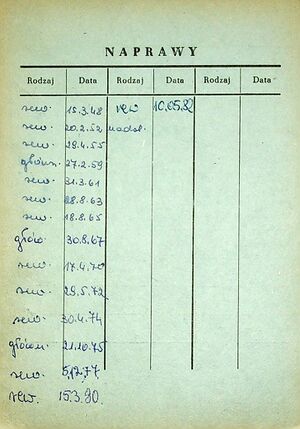 NAPRAWY
Rodzaj Data Rodzaj Data Rodzaj Data
rew. 15.3.48 rew 10.05.82
rew. 20.2.52 nadzw.
rew. 29.4.55
główn. 27.2.59
rew. 31.3.61
rew. 28.8.63
rew. 18.8.65
główn. 30.8.67
rew. 17.4.70
rew. 29.5.72
rew. 30.4.74
główn. 21.10.75
rew. 5.12.77
rew. 15.3.80.